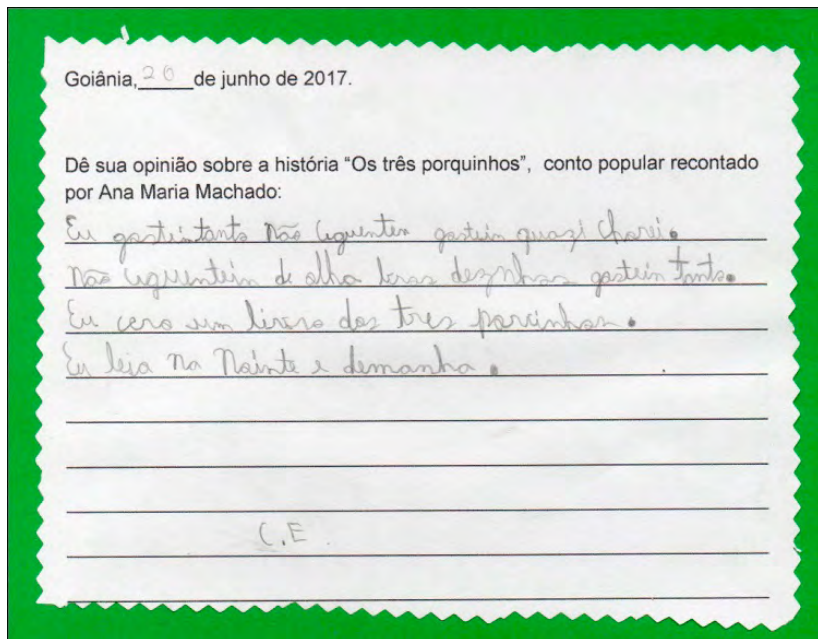 Goiânia, 20 de junho de 2017.
Dê sua opinião sobre a história “Os três porquinhos”, conto popular recontado
por Ana Maria Machado:
Eu gosteintanto não aguenten gostein quazi chorei.
Não aguentein de olha dezenhos gostein tanto.
Eu cero um livro dos tres porcinhos.
Eu leia na Nointe e demanha.
C.E.